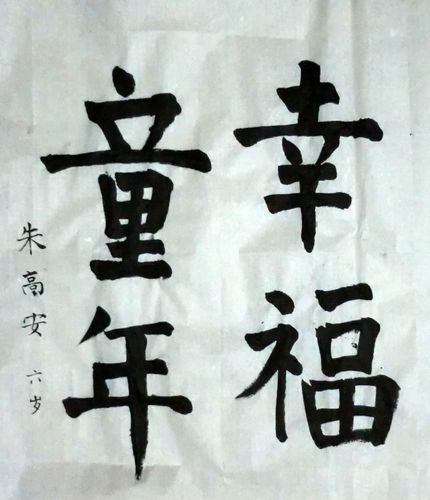 幸福
童年
朱高安 六岁